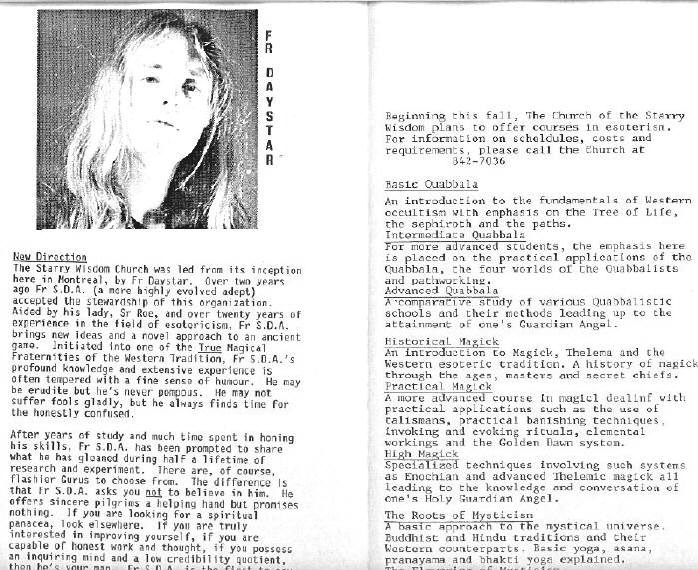 FR DAYSTAR
New Direction
The Starry Wisdom Church was led from its inception
here in Montreal, by Fr Daystar. Over two years
ago Fr S.D.A. (a more highly evolved adept)
accepted the stewardship of this organization.
Aided by his lady, Sr Roe, and over twenty years of
experience in the field of esotericism, Fr S.D.A.
brings new ideas and a novel approach to an ancient
game. Initiated into one of the True Magical
Fraternities of the Western Tradition, Fr S.D.A.'s
profound knowledge and extensive experience is
often tempered with a fine sense of humour. He may
be erudite but he's never pompous. He may not
suffer fools gladly, but he always finds time for
the honestly confused.
After years of study and much time spent in honing
his skills, Fr S.D.A. has been prompted to share
what he has gleaned during half a lifetime of
research and experiment. There are, of course,
flashier Gurus to choose from. The difference is
that Fr S.D.A. asks you not to believe in him. He
offers sincere pilgrims a helping hand but promises
nothing. If you are looking for a spiritual
panacea, look elsewhere. If you are truly
interested in improving yourself, if you are
capable of honest work and thought, if you possess
an inquiring mind and a low credibility quotient,
then he's your man. Fr S.D.A. is the first to say
Beginning this fall, The Church of the Starry
Wisdom plans to offer courses in esoterism.
For information on scheldules, costs and
requirements, please call the Church at
842-7036
Basic Quabbala
An introduction to the fundamentals of Western
occultism with emphasis on the Tree of Life,
the sephiroth and the paths.
Intermediate Quabbala
For more advanced students, the emphasis here
is placed on the practical applications of the
Quabbala, the four worlds of the Quabbalists
and pathworking.
Advanced Quabbala
A comparative study of various Quabbalistic
schools and their methods leading up to the
attainment of one's Guardian Angel.
Historical Magick
An introduction to Magick, Thelema and the
Western esoteric tradition. A history of magick
through the ages, masters and secret chiefs.
Practical Magick
A more advanced course in magicl dealinf with
practical applications such as the use of
talismans, practical banishing techniques,
invoking and evoking rituals, elemental
workings and the Golden Dawn system.
High Magick
Specialized techniques involving such systems
as Enochian and advanced Thelemic magick all
leading to the knowledge and conversation of
one's Holy Guardian Angel.
The Roots of Mysticism
A basic approach to the mystical universe.
Buddhist and Hindu traditions and their
Western counterparts. Basic yoga, asana,
pranayama and bhakti yoga explained.